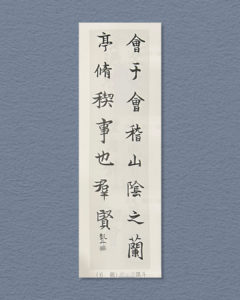 會于會稽山陰之蘭
亭脩稧事也羣賢